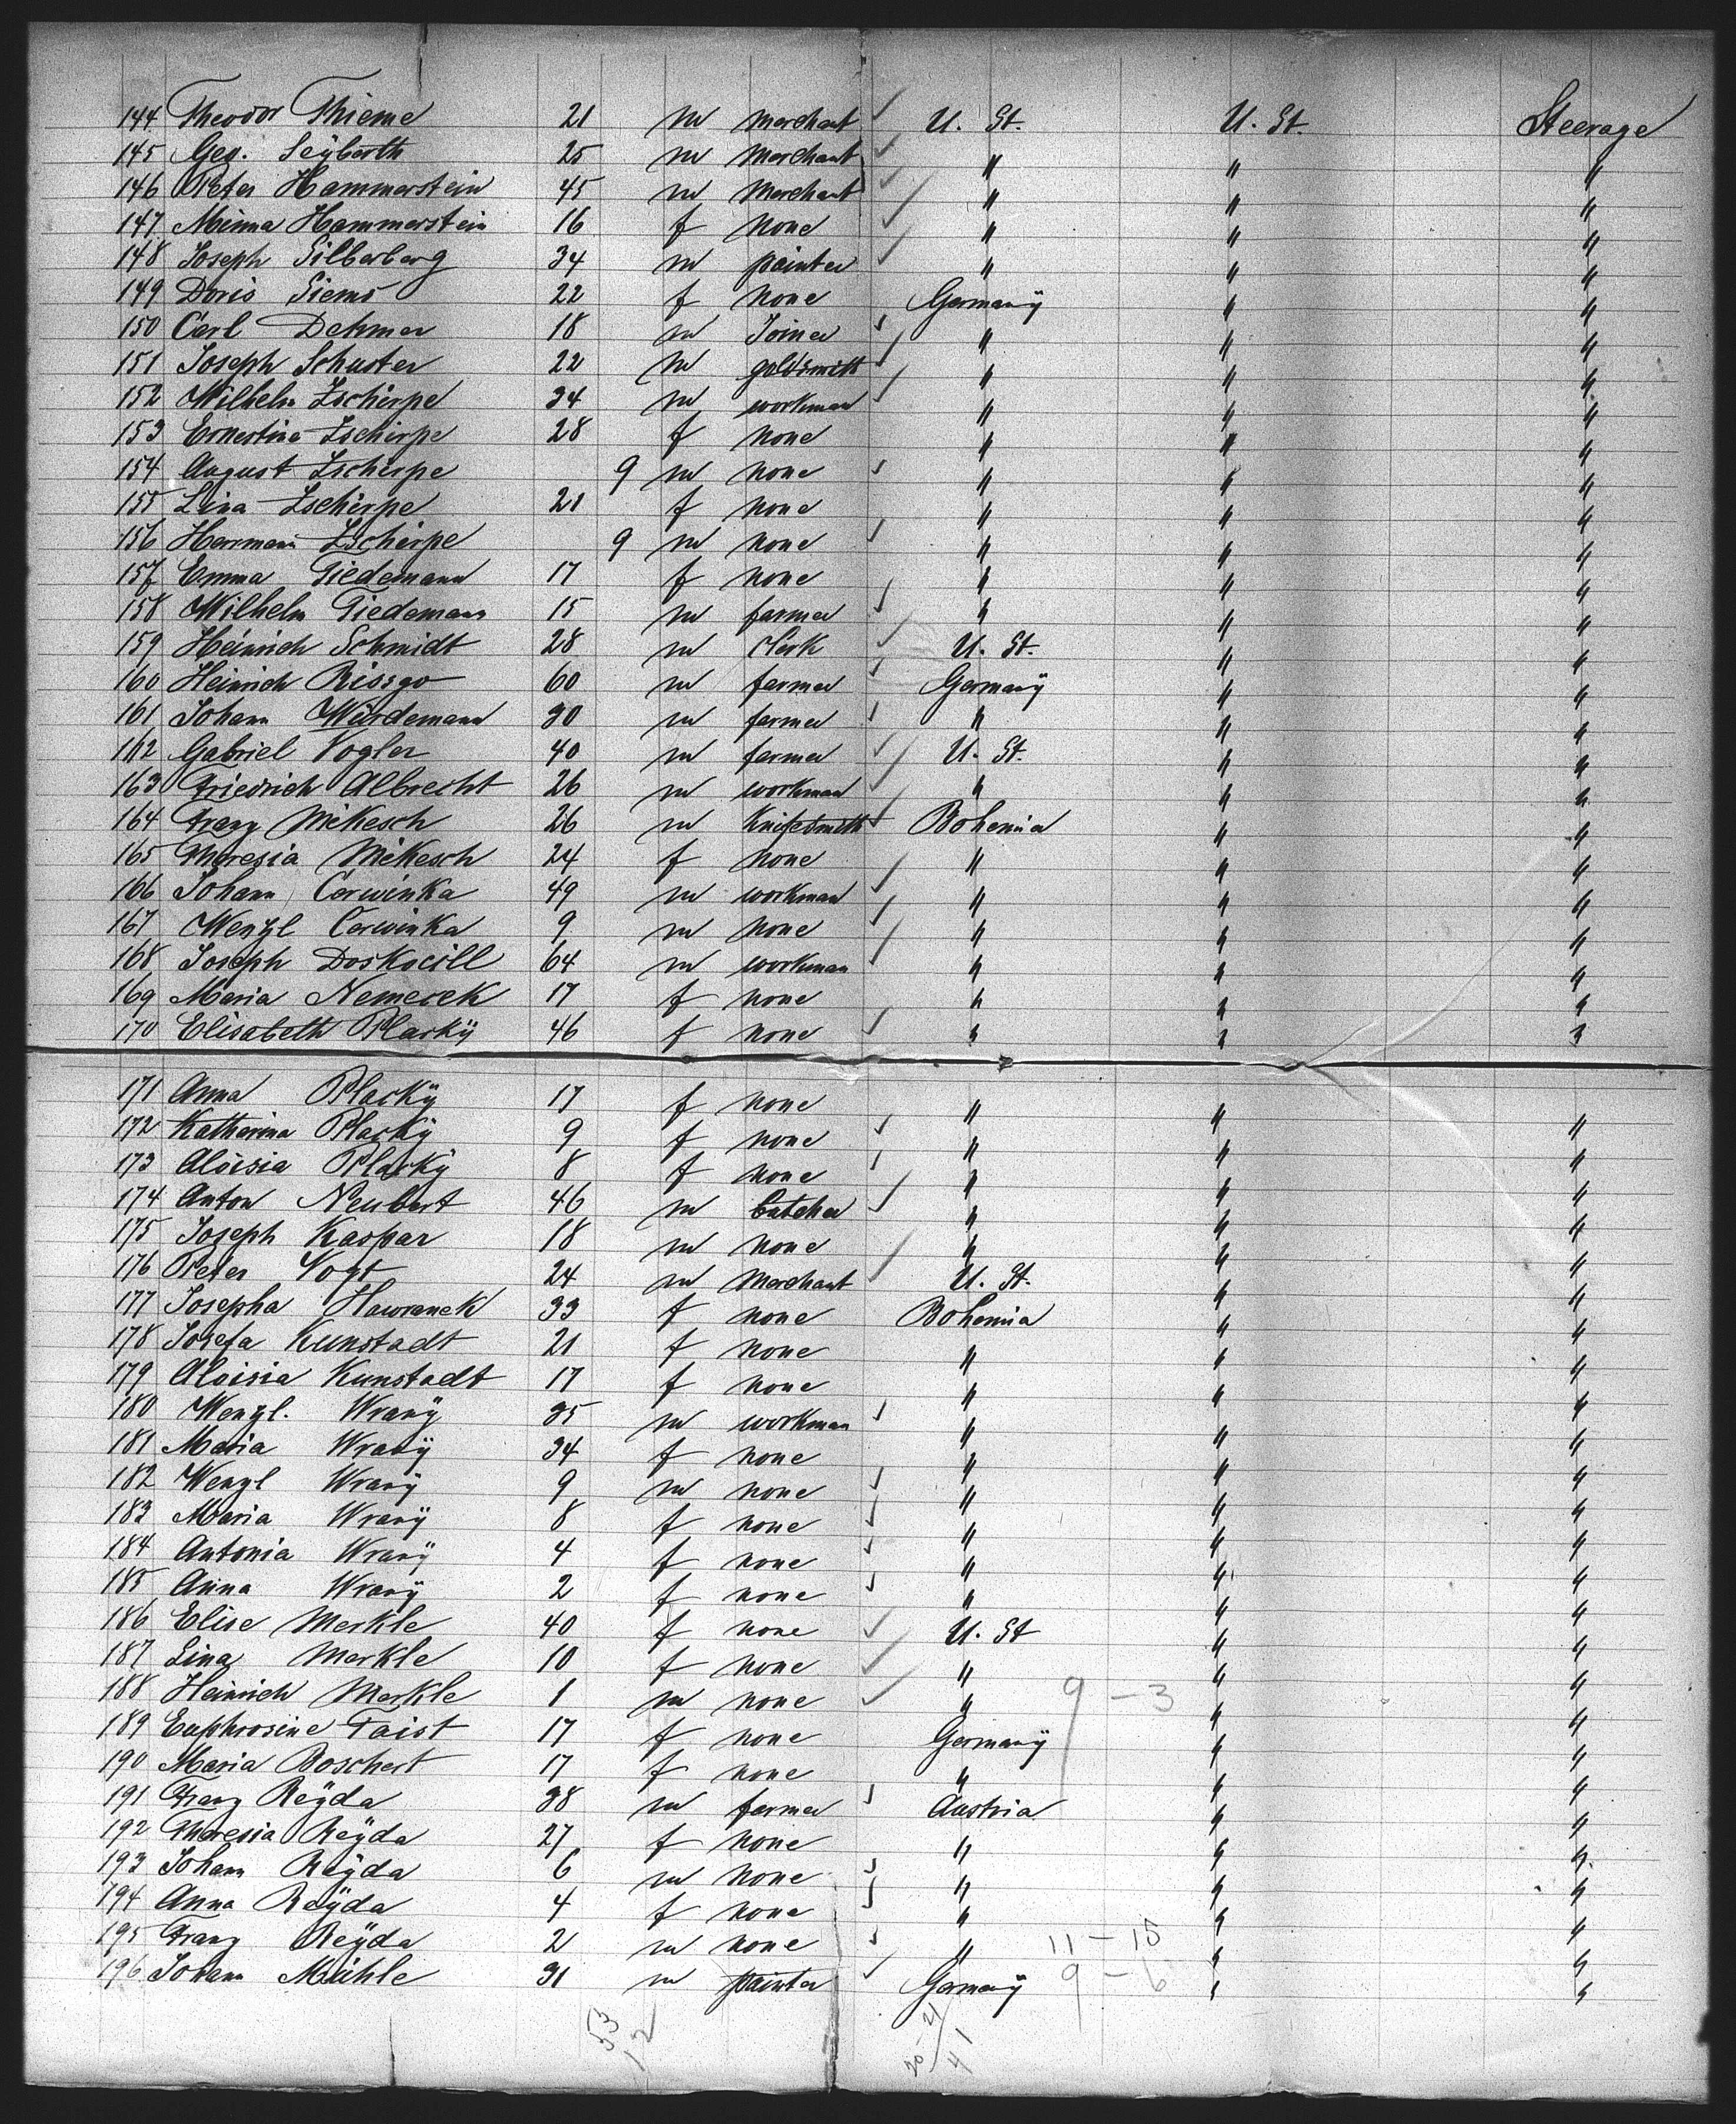 144 Theodor Thieme 21 m merchant U. St. U. St. Steerage
145 Geo. Seÿberth 25 m merchant " " "
146 Peter Hammerstein 45 m merchant " " "
147 Minna Hammerstein 16 f none " " "
148 Joseph Silberberg 34 m painter " " "
149 Doris Siems 22 f none Germanÿ " "
150 Carl Dehmer 18 m Joiner " " "
151 Joseph Schuster 22 m goldsmith " " "
152 Wilhelm Zschirpe 34 m workman " " "
153 Ernestine Zschirpe 28 f none " " "
154 August Zschirpe 9 m none " " "
155 Lina Zschirpe 21 f none " " "
156 Hermann Zschirpe 9 m none " " "
157 Emma Tiedemann 17 f none " " "
158 Wilhelm Tiedemann 15 m farmer " " "
159 Heinrich Schmidt 28 m clerk U. St. " "
160 Heinrich Rissgo 60 m farmer Germanÿ " "
161 Johann Würdemann 30 m farmer " " "
162 Gabriel Vogler 40 m farmer U. St. " "
163 Friedrich Albrecht 26 m workman " " "
164 Franz Mikesch 26 m Knifesmith Bohemia " "
165 Theresia Mikesch 24 f none " " "
166 Johann Cerwinka 49 m workman " " "
167 Wenzl Cerwinka 9 m none " " "
168 Joseph Doskocill 64 m workman " " "
169 Maria Nemecek 17 f none " " "
170 Elisabeth Plackÿ 46 f none " " "
171 Anna Plackÿ 17 f none " " "
172 Katharina Plackÿ 9 f none " " "
173 Aloisia Plackÿ 8 f none " " "
174 Anton Neubert 46 m butcher " " "
175 Joseph Kaspar 18 m none " " "
176 Peter Vogt 24 m merchant U. St. " "
177 Josepha Hawranek 33 f none Bohemia " "
178 Josefa Kunstadt 21 f none " " "
179 Aloisia Kunstadt 17 f none " " "
180 Wenzl. Wranÿ 35 m workman " " "
181 Maria Wranÿ 34 f none " " "
182 Wenzl Wranÿ 9 m none " " "
183 Maria Wranÿ 8 f none " " "
184 Antonia Wranÿ 4 f none " " "
185 Anna Wranÿ 2 f none " " "
186 Elise Merkle 40 f none U. St " "
187 Lina Merkle 10 f none " " "
188 Heinrich Merkle 1 m none " 9 - 3 " "
189 Euphrosine Faist 17 f none Germanÿ " "
190 Maria Boschert 17 f none " " "
191 Franz Reÿda 38 m farmer Austria " "
192 Theresia Reÿda 27 f none " " "
193 Johann Reÿda 6 m none " " "
194 Anna Reÿda 4 f none " " "
195 Franz Reÿda 2 m none " 11 - 15 " "
196 Johann Mühle 31 m painter Germanÿ 9 - 6 " "
53
12
41